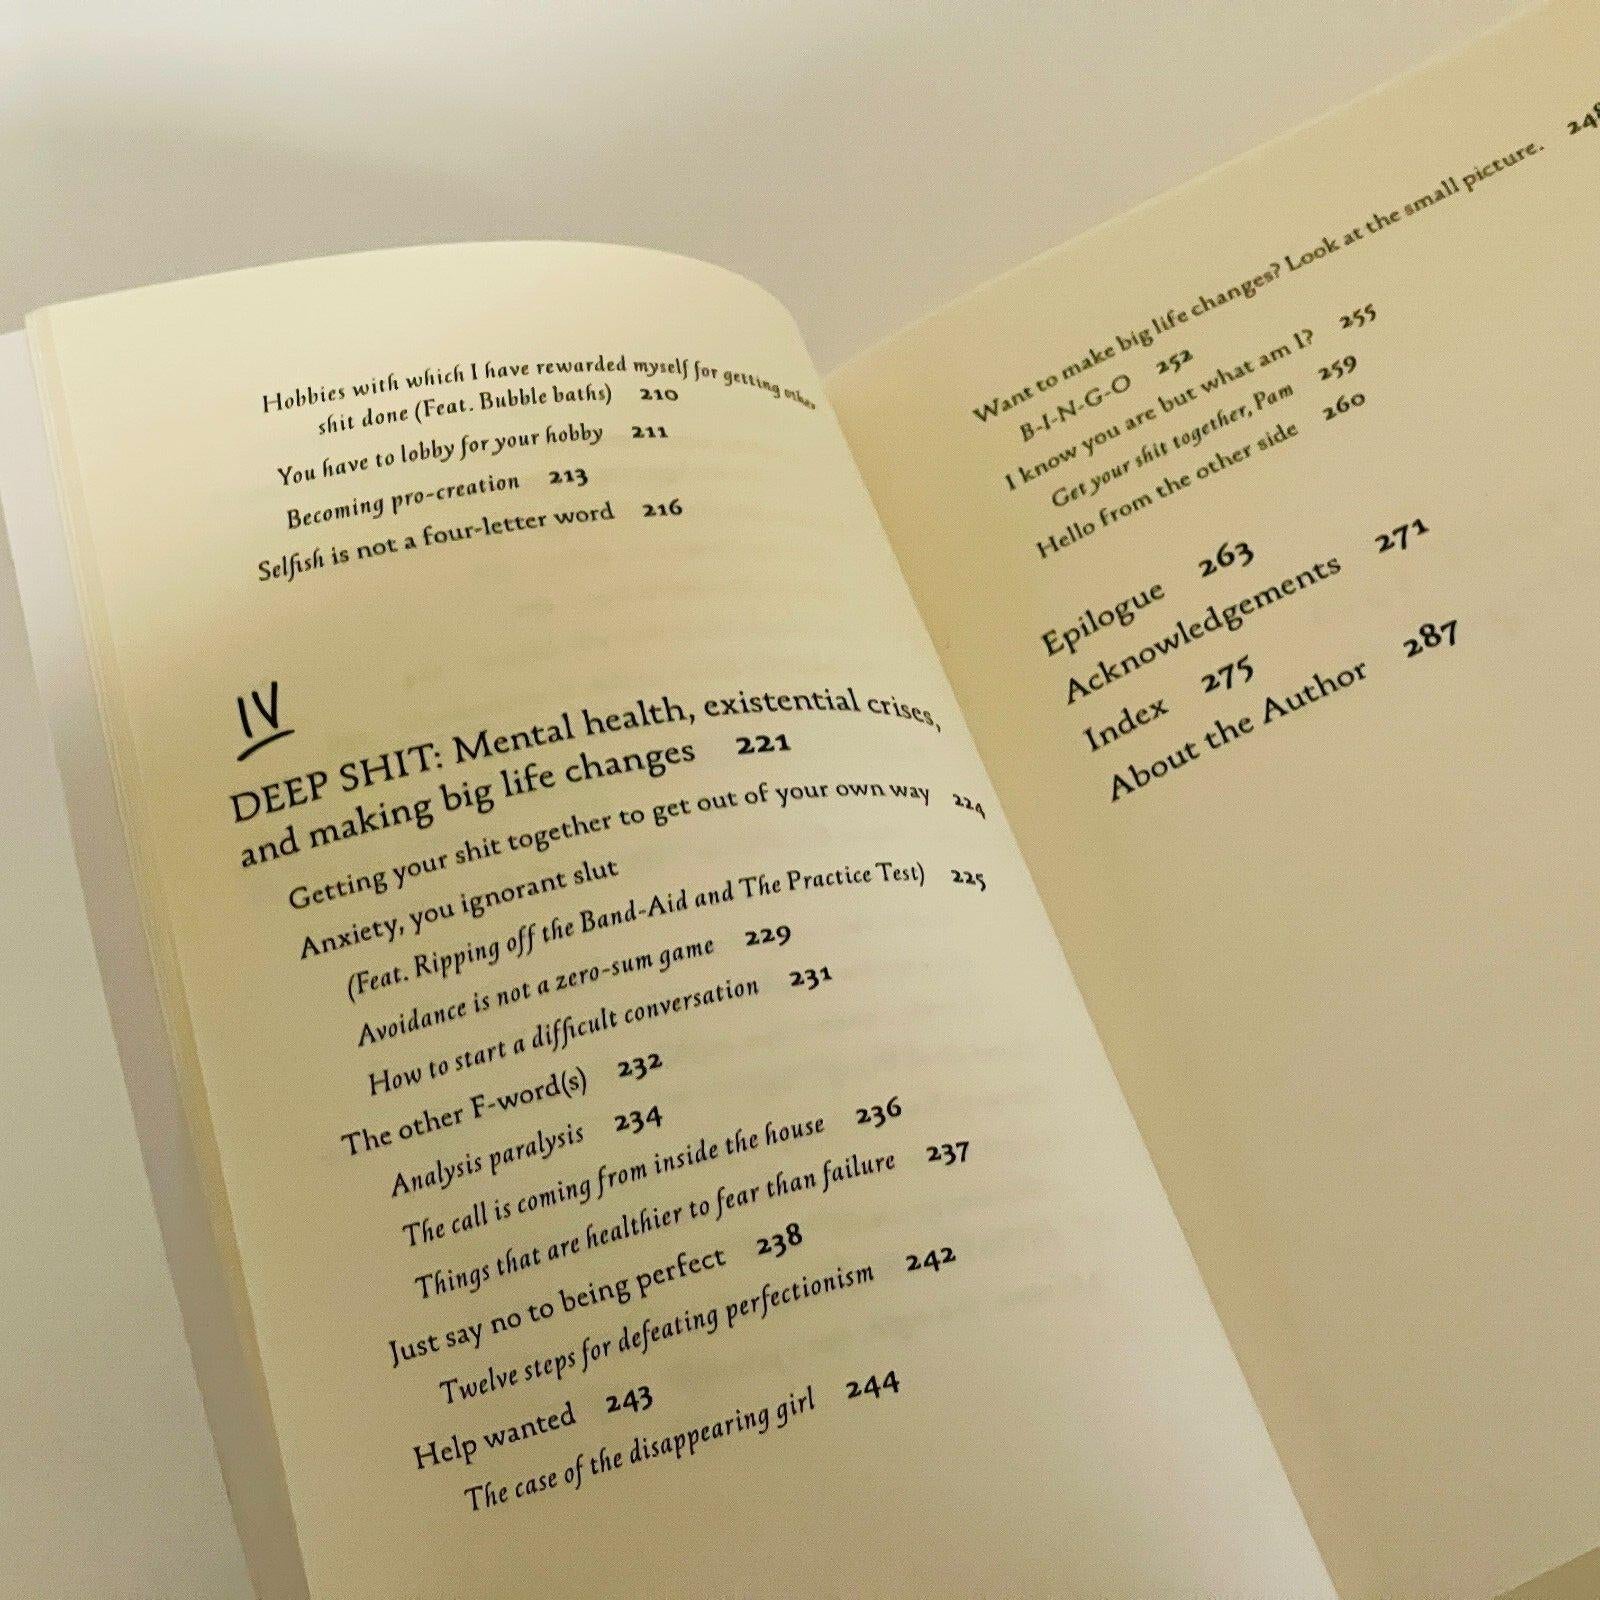 Hobbies with which I have rewarded myself for getting other
shit done (Feat. Bubble baths) 210
You have to lobby for your hobby 211
Becoming pro-creation 213
Selfish is not a four-letter word 216
IV
DEEP SHIT: Mental health, existential crises,
and making big life changes 221
Getting your shit together to get out of your own way 224
Anxiety, you ignorant slut
(Feat. Ripping off the Band-Aid and The Practice Test) 225
Avoidance is not a zero-sum game 229
How to start a difficult conversation 231
The other F-word(s) 232
Analysis paralysis 234
The call is coming from inside the house 236
Things that are healthier to fear than failure 237
Just say no to being perfect 238
Twelve steps for defeating perfectionism 242
Help wanted 243
The case of the disappearing girl 244
Want to make big life changes? Look at the small picture. 248
B-I-N-G-O 252
I know you are but what am I? 255
Get your shit together, Pam 259
Hello from the other side 260
Epilogue 263
Acknowledgements 271
Index 275
About the Author 287